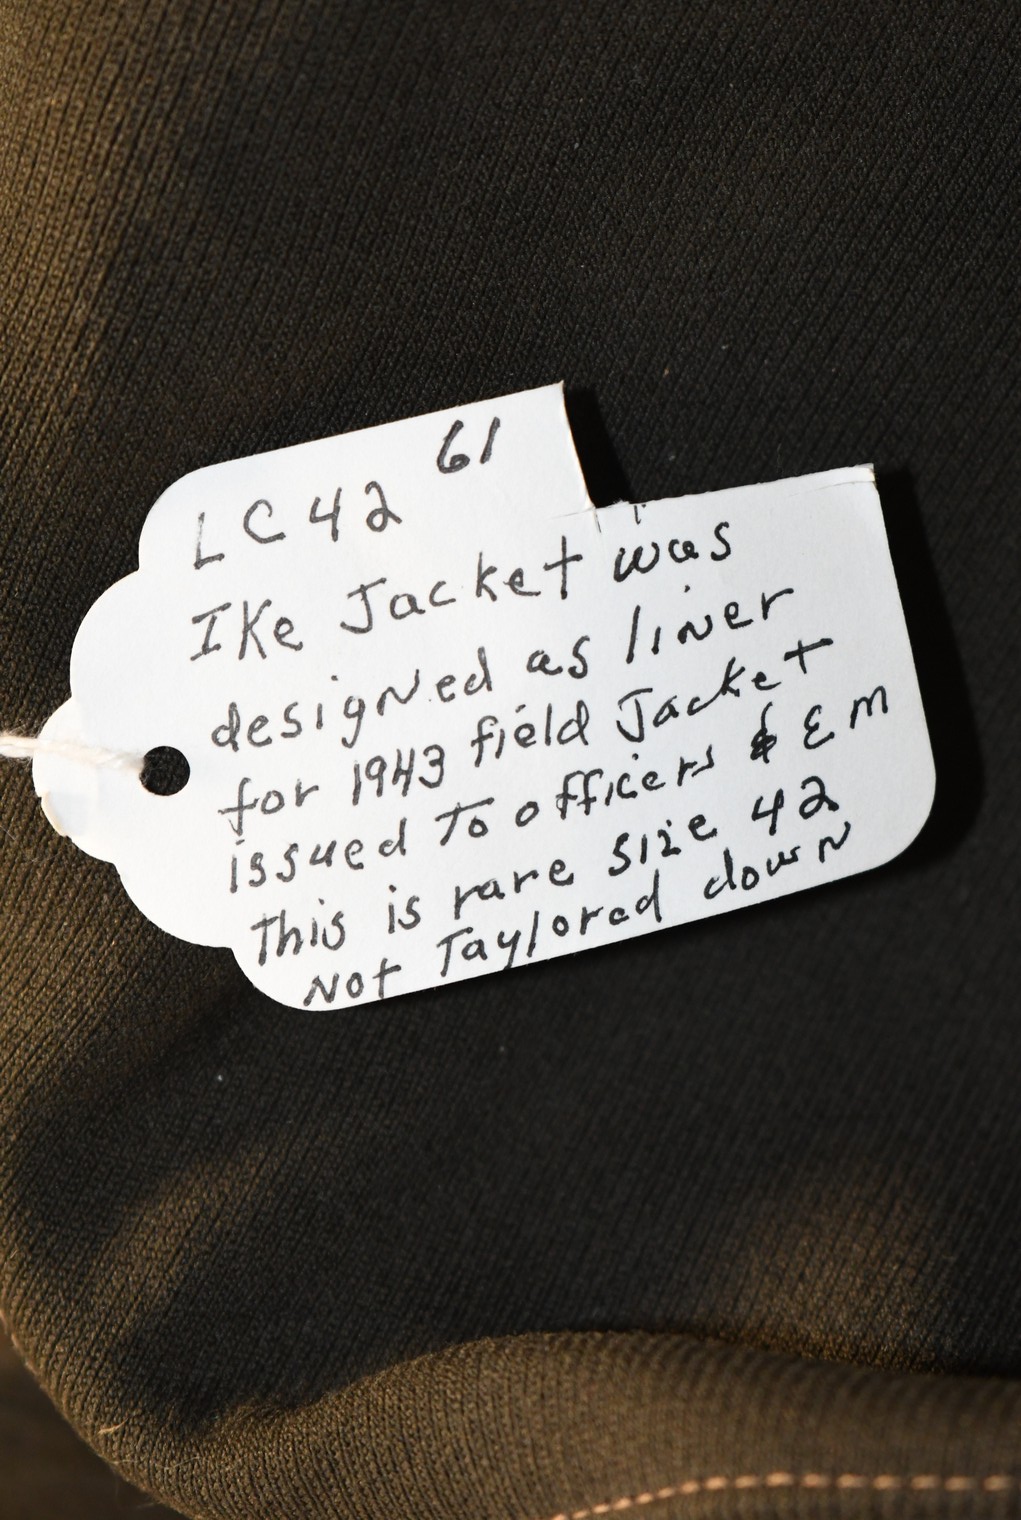 61
LC42
IKe Jacket was
designed as liner
for 1943 field Jacket
issued To officers & EM
This is rare size 42
Not Taylored down